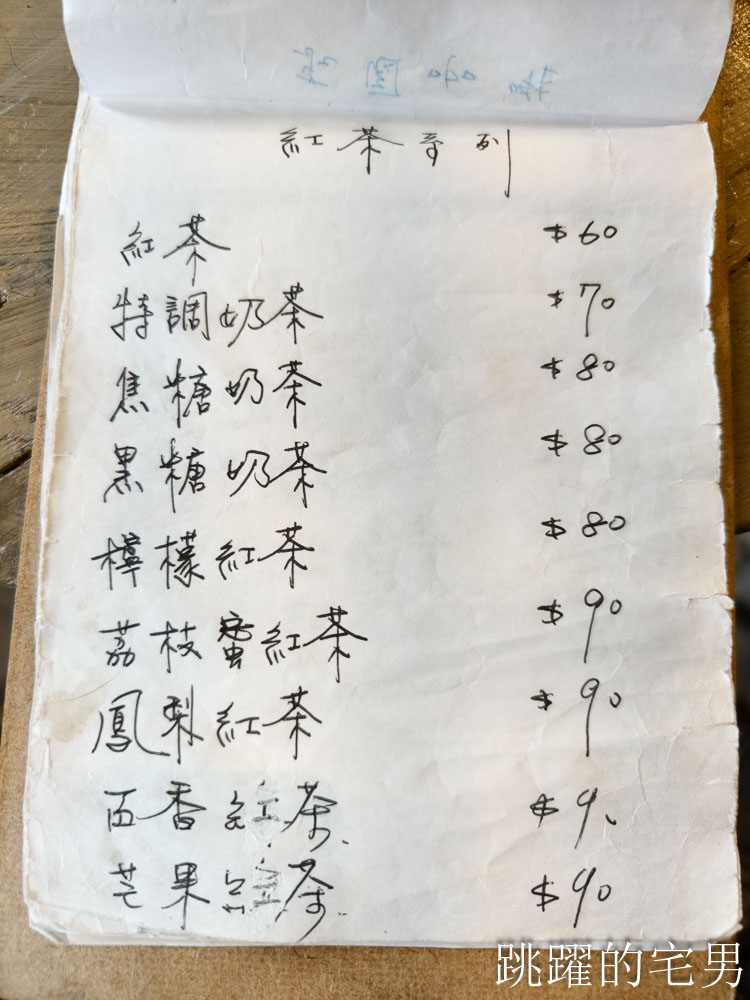 紅茶系列
紅茶 $60
特調奶茶 $70
焦糖奶茶 $80
黑糖奶茶 $80
檸檬紅茶 $80
荔枝蜜紅茶 $90
鳳梨紅茶 $90
百香紅茶 $90
芒果紅茶 $90
跳躍的宅男